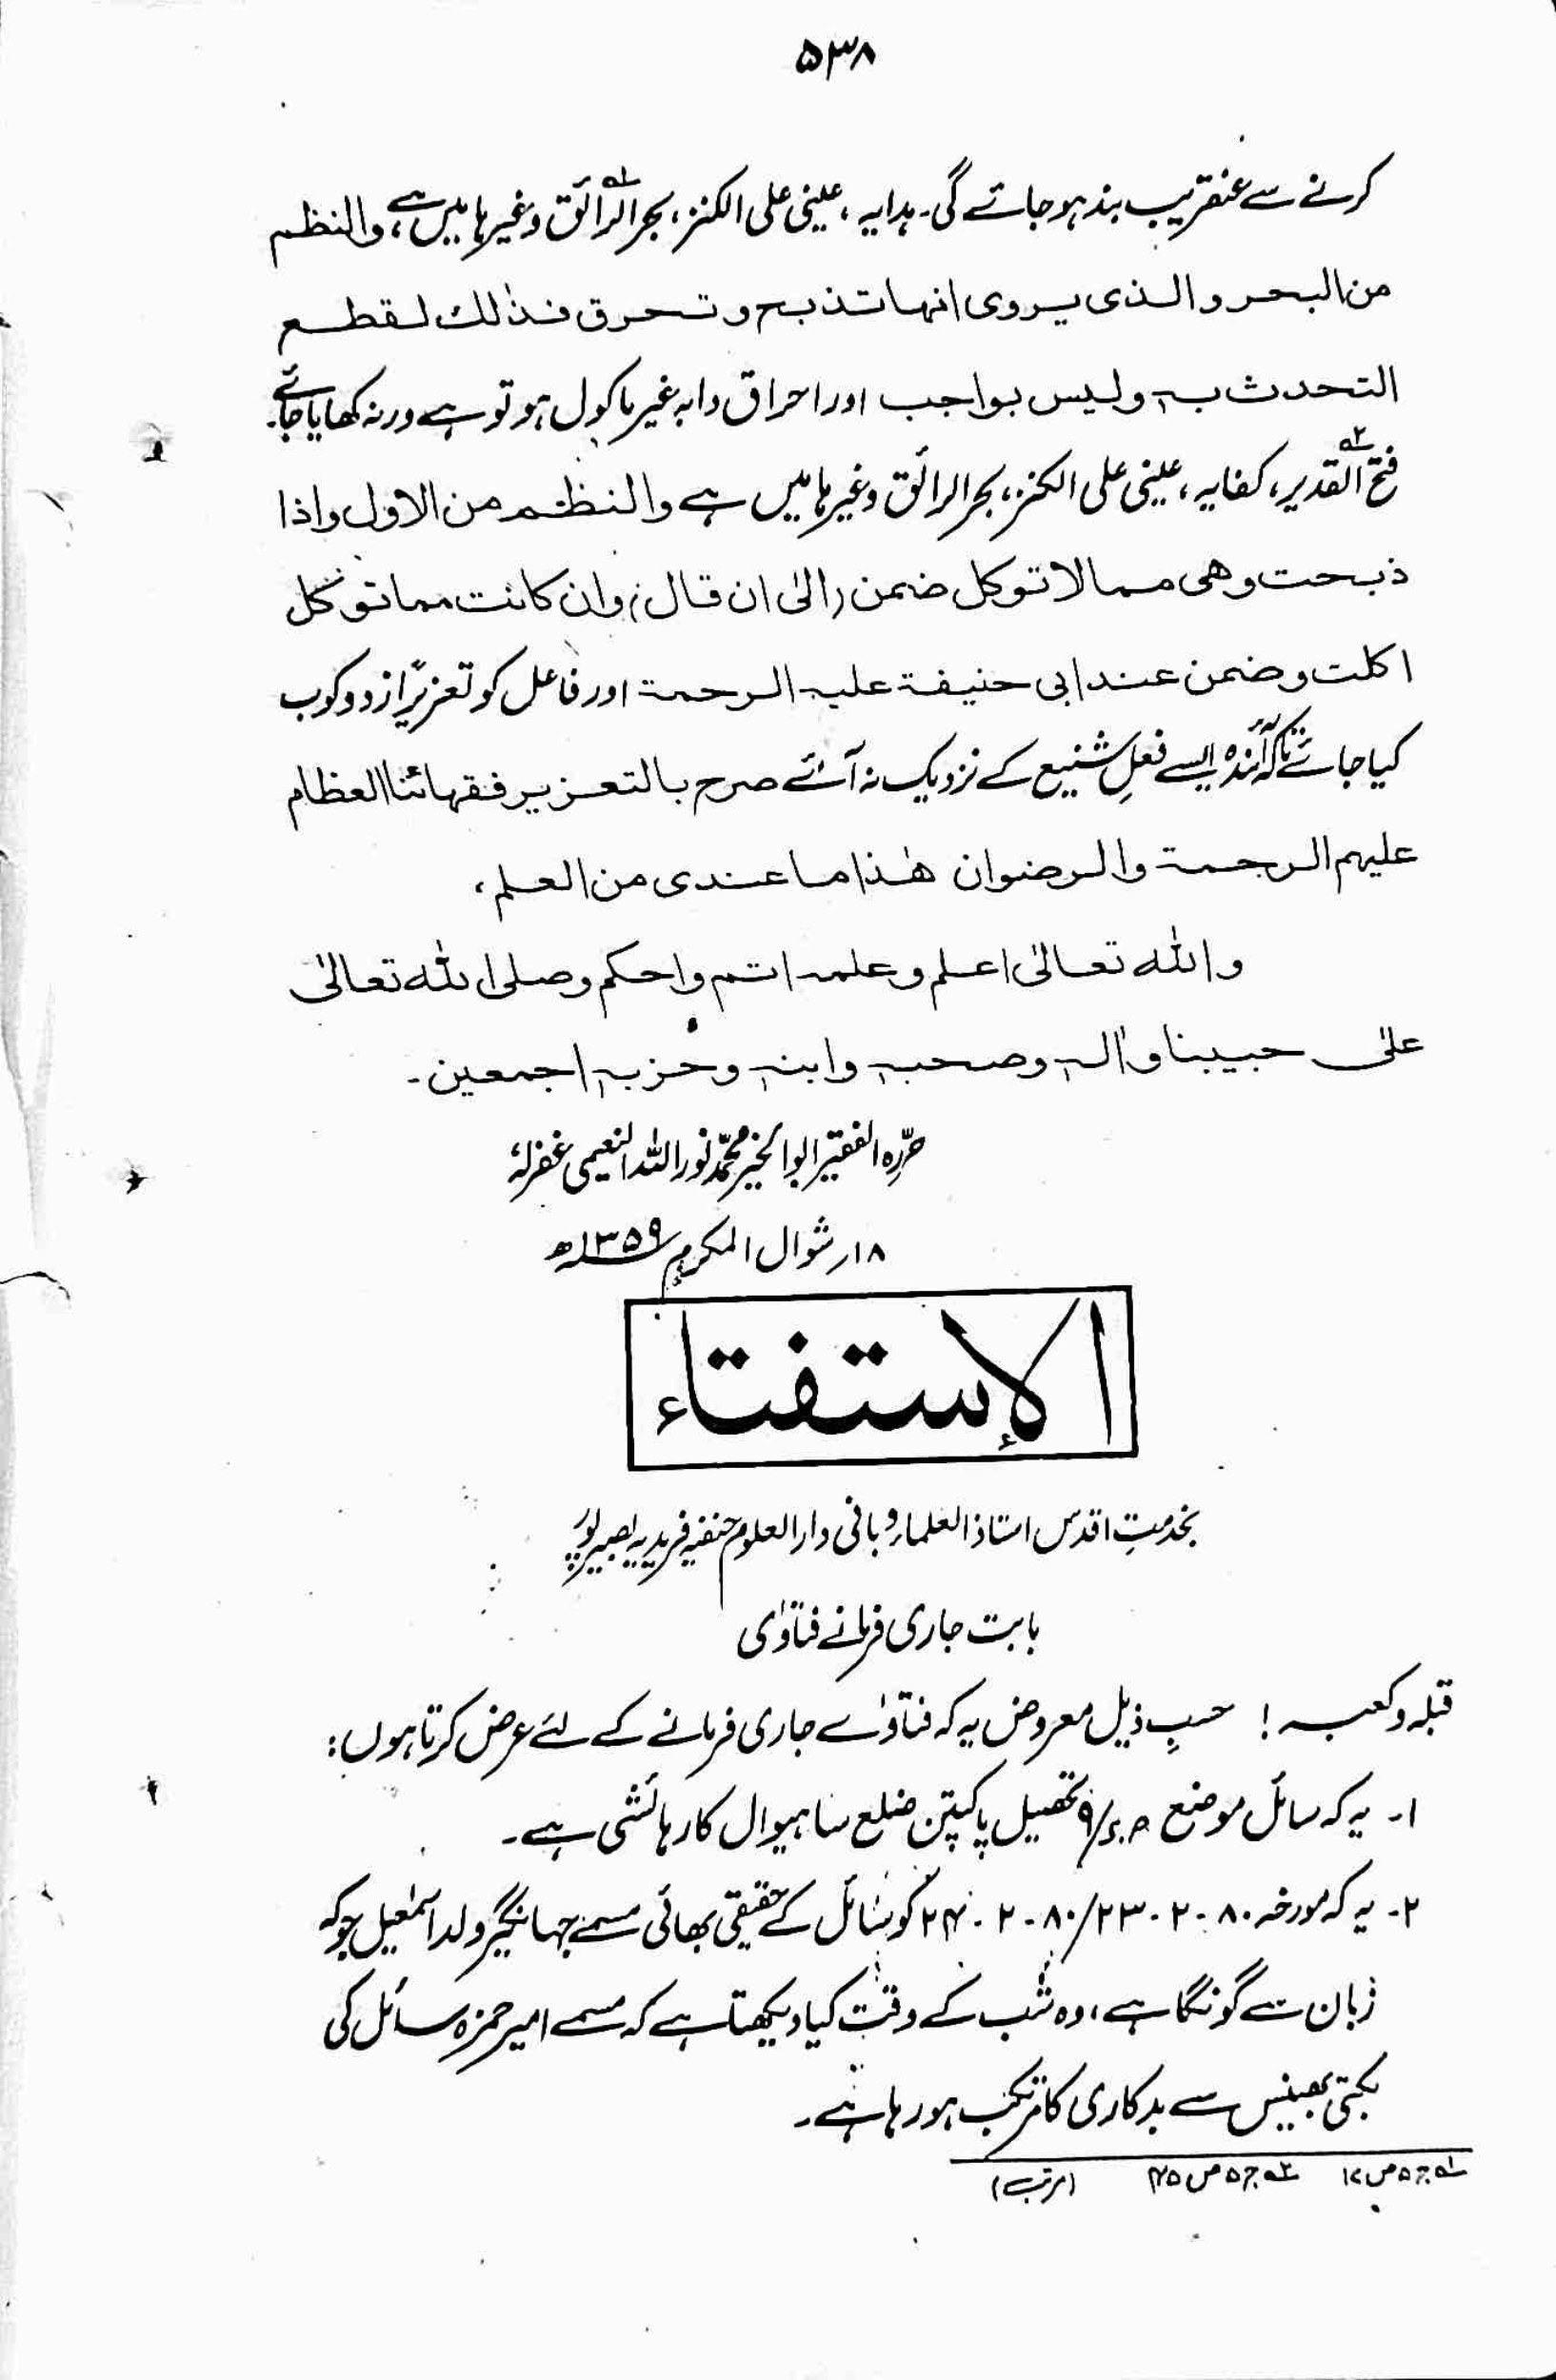 ۵۳۸
کرنے سے عنقریب بند ہو جائے گی۔ ہدایہ، عینی علی الکنز، بحر الرائق لہ وغیرہا میں ہے، والنظم
من البحر والذی یروی انہا تذبح وتحرق فذٰلك لقطع
التحدث بہ ولیس بواجب اور احراق دابہ غیر ماکول ہو تو ہے ورنہ کھایا جائے۔
فتح القدیر ۲ہ، کفایہ، عینی علی الکنز، بحر الرائق وغیرہا میں ہے والنظم من الاول واذا
ذبحت وھی مما لا توکل ضمن (الیٰ ان قال) وان کانت مما توکل
اکلت وضمن عند ابی حنیفۃ علیہ الرحمۃ اور فاعل کو تعزیرًا زدوکوب
کیا جائے تاکہ آئندہ ایسے فعلِ شنیع کے نزدیک نہ آئے صرح بالتعزیر فقہائنا العظام
علیہم الرحمۃ والرضوان ھٰذا ما عندی من العلم،
واللہ تعالیٰ اعلم وعلمہ اتم واحکم وصلی اللہ تعالیٰ
علیٰ حبیبنا واٰلہٖ وصحبہٖ وابنہٖ وحزبہٖ اجمعین۔
حرّرہ الفقیر ابوالخیر محمّد نور اللہ النعیمی غفرلہٗ
۱۸؍ شوال المکرم ۱۳۵۹ھ
الإستفتاء
بخدمتِ اقدس استاذ العلماء و بانی دارالعلوم حنفیہ فریدیہ بصیرپور
بابت جاری فرمانے فتاوٰی
قبلہ و کعبہ! حسبِ ذیل معروض یہ کہ فتاوٰے جاری فرمانے کے لئے عرض کرتا ہوں:
۱۔ یہ کہ سائل موضع تحصیل پاکپتن ضلع ساہیوال کا رہائشی ہے۔
۲۔ یہ کہ مورخہ ۸۰-۲-۲۳/۸۰-۲-۲۴ کو سائل کے حقیقی بھائی مسمے جہانگیر ولد اسمٰعیل جو کہ
زبان سے گونگا ہے، وہ شب کے وقت کیا دیکھتا ہے کہ مسمے امیر حمزہ سائل کی
بھینس سے بدکاری کا مرتکب ہو رہا ہے۔
لہ ج ۵ ص ۱۷ ۲ہ ج ۵ ص ۴۵ (مرتب)